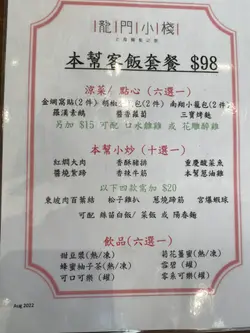 龍門小棧
本幫客飯套餐 $98
涼菜/點心 (六選一)
金網窩貼(2件) 胡椒 包(2件) 南翔小籠包(2件)
羅漢素鵝 醬香蘿蔔 三寶烤麩
另加 $15 可配 口水雞 或 花雕醉雞
本幫小炒 (十選一)
紅燜大肉 香酥豬排 重慶酸菜魚
醬燒紫蹄 香辣牛筋 本幫蔥油雞
以下四款需加 $20
東坡肉百葉結 松子雞 蔥燒蹄筋 宮爆蝦球
可配 絲苗白飯/菜飯 或 陽春麵
飲品(六選一)
甜豆漿(熱/凍) 菊花薑蜜(熱/凍)
蜂蜜柚子茶(熱/凍) 雪碧 (罐)
可口可樂 (罐) 零系可樂(罐)
Aug 2022